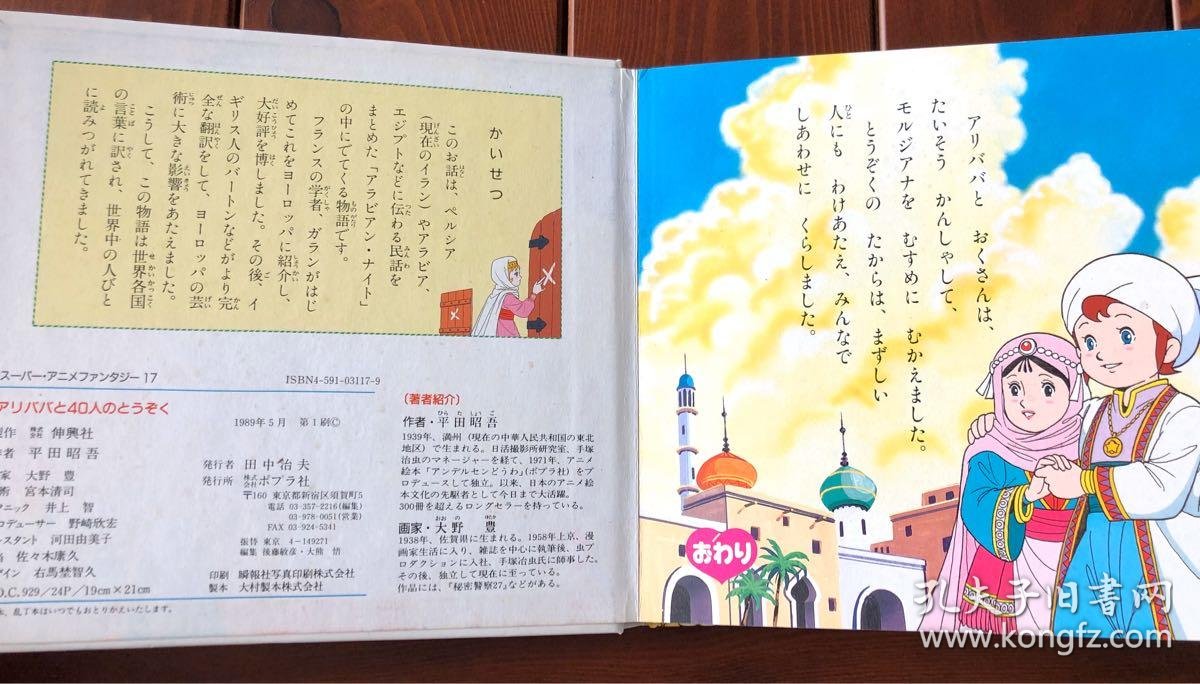 かいせつ
このお話は、ペルシア
(現在のイラン)やアラビア、
エジプトなどに伝わる民話を
まとめた「アラビアン・ナイト」
の中にでてくる物語です。
フランスの学者、ガランがはじ
めてこれをヨーロッパに紹介し、
大好評を博しました。その後、イ
ギリス人のバートンなどがより完
全な翻訳をして、ヨーロッパの芸
術に大きな影響をあたえました。
こうして、この物語は世界各国
の言葉に訳され、世界中の人びと
に読みつがれてきました。
スーパー・アニメファンタジー17
ISBN4-591-03117-9
アリババと40人のとうぞく
1989年5月 第1刷©
製作 株式会社 伸興社
作者 平田昭吾
画家 大野 豊
宮本清司
井上 智
野崎欣宏
河田由美子
佐々木康久
右馬埜智久
発行者 田中治夫
発行所 株式会社ポプラ社
〒160 東京都新宿区須賀町5
電話 03-357-2216(編集)
03-978-0051(営業)
FAX 03-924-5341
振替 東京 4-149271
編集 後藤敏彦・大熊 悟
印刷 瞬報社写真印刷株式会社
製本 大村製本株式会社
D.C.929/24P/19cm×21cm
乱丁本はいつでもおとりかえいたします。
〔著者紹介〕
作者・平田昭吾
1939年、満州(現在の中華人民共和国の東北
地区)で生まれる。日活撮影所研究室、手塚
治虫のマネージャーを経て、1971年、アニメ
絵本「アンデルセンどうわ」(ポプラ社)をプ
ロデュースして独立。以来、日本のアニメ絵
本文化の先駆者として今日まで大活躍。
300冊を超えるロングセラーを持っている。
画家・大野 豊
1938年、佐賀県に生まれる。1958年上京、漫
画家生活に入り、雑誌を中心に執筆後、虫プ
ロダクションに入社、手塚治虫氏に師事した。
その後、独立して現在に至っている。
作品には、『秘密警察27』などがある。
アリババと おくさんは、
たいそう かんしゃして、
モルジアナを むすめに むかえました。
とうぞくの たからは、まずしい
人にも わけあたえ、みんなで
しあわせに くらしました。
おわり
孔夫子旧书网
www.kongfz.com